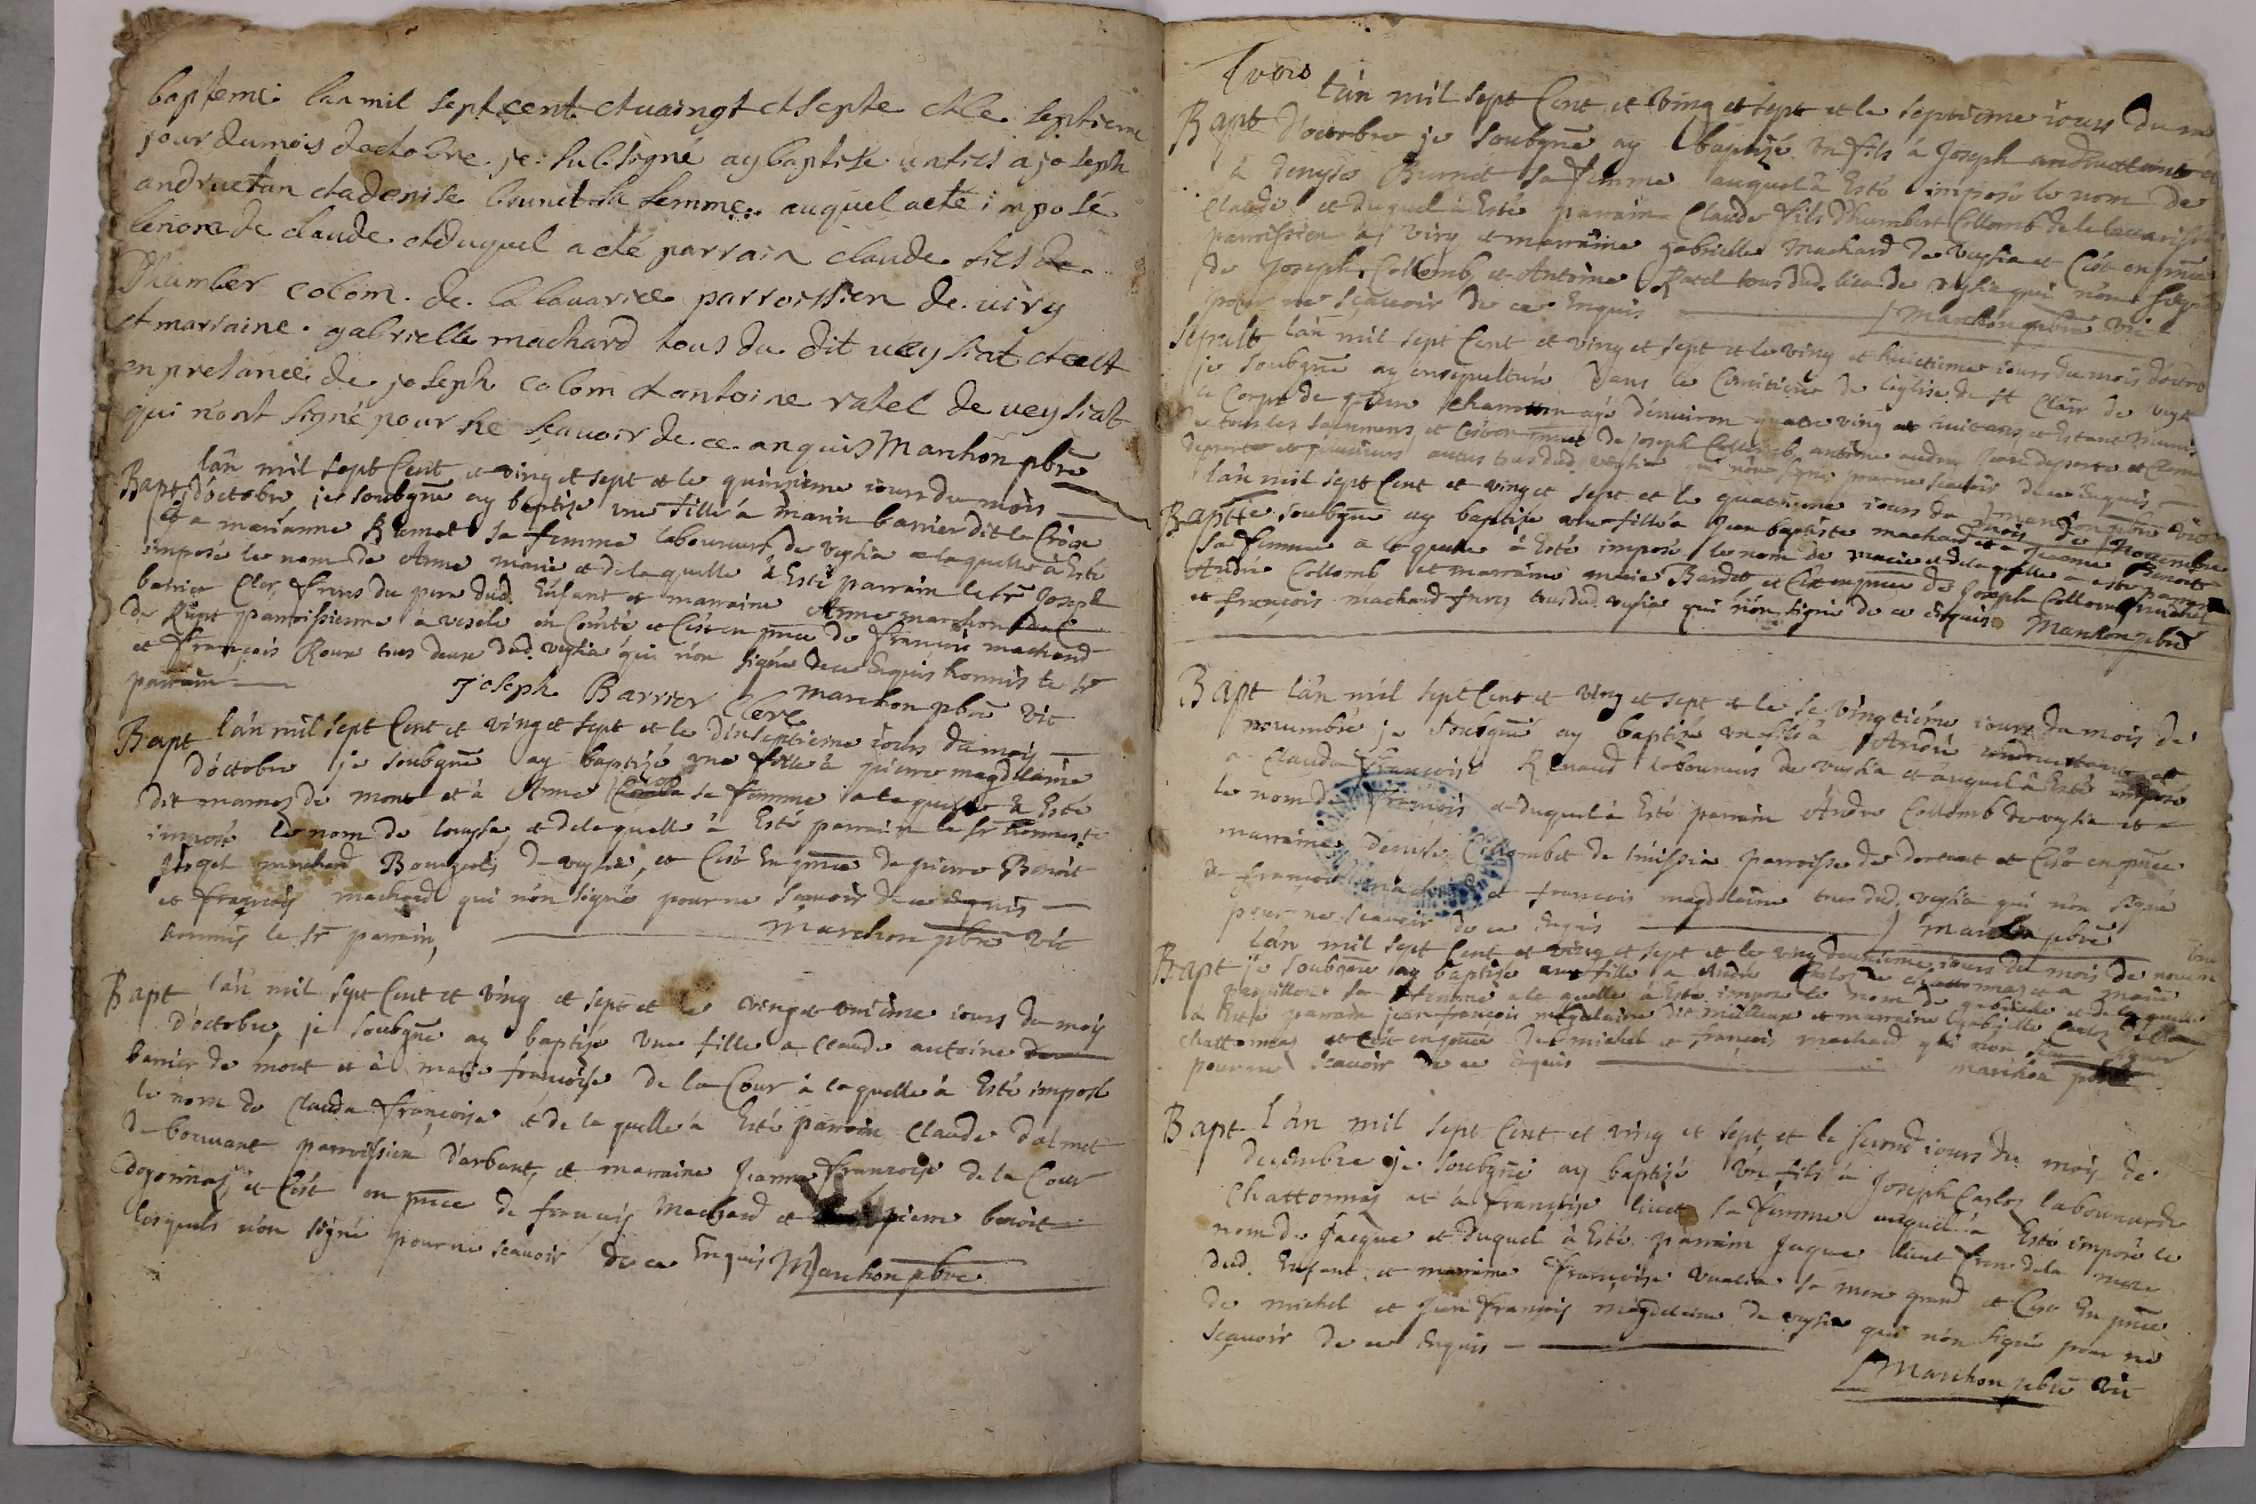 bapteme lan mil sept cent et uaingt et septe et le septieme
jour du mois doctobre je sub signé ay baptise un fils a joseph
andruetan et a denise brunet sa femme auquel a eté imposé
le nom de claude et duquel a eté parrain claude fils de
Dhumber colom de la lauariee parroissien de uiry
et marraine gabrielle machard tous du dit ueysiat et cest
en presance de joseph colom et antoine ratel de ueysiat
qui n'ont signé pour ne sçauoir de ce anquis Marchon pbre
lân mil sept Cent et ving et sept et le quinzieme iours du mois
Bapt d'octobre je soubgne ay baptize une fille á marin barrier dit la Croix
et a mariánne Ramet sa femme laboureurs de veysia a laquelle à Esté
imposé le nom de Anne marie et de laquelle à Esté parrain le sr Joseph
barrier Clerc frere du pere dud. Enfant et marraine Anne marchon
de Rupt parroissienne à vescle en Comté et Cest en pnce de francois machard
et francois Roux tous deux dud. veysia qui n'on signé de ce Enquis hormis le sr
parrain Joseph Barrier Clerc Marchon pbre vic
Bapt lân mil sept Cent et ving et sept et le dixseptieme iours du mois
d'octobre je soubgne ay baptizé une fille à pierre magdelaine
dit mamas de mont et à Anne sa femme a laquelle à Esté
imposé le nom de louyse, et de laquelle à Esté parrain le sr honneste
machard Bourgeois de veysia, et Cest En pnce de pierre Benoit
et francois machard qui n'on signé pour ne sçauoir de ce enquis
hormis le sr parrain, Marchon pbre vic
Bapt lân mil sept Cent et ving et sept et le vingt unieme iours du mois
d'octobre, je soubgne ay baptizé une fille a Claude antoine
barrier de mont et à marie francoise de la Cour à laquelle à Esté imposé
le nom de Clauda francoise et de laquelle à Esté parrain Claude dalmet
de bouuant parroissien d'arbent, et marraine Jeanne francoise de la Cour
doyonnax, et Cest en pnce de francois Machard et pierre benoit
lesquels n'on signé pour ne sçauoir de ce Enquis Marchon pbre
Trois
lân mil sept Cent et ving et sept et le septieme iours du m
Bapt d'octobre je soubgne ay baptizé un fils à Joseph andruettant et
à denyse Burnet sa femme auquel à Esté imposé le nom de
Claude et duquel à Esté parrain Claude fils d'humbert Collomb de la lauariee
parroissien à viry et marraine gabrielle Machard de veysia et Cest en pnce
de Joseph Collomb et Antoine Ratel tous dud. lieu de veysia qui n'on signé
pour ne sçauoir de ce Enquis Marchon pbre vic
Sepult lân mil sept Cent et ving et sept et le ving et huictieme iours du mois d'octo
je soubgne ay ensepulturé dans le Cemitiere de l'eglise de st Clair de veys
le Corps de agé d'enuiron quatre ving et huit ans et Estant muni
de tous les sacremens et Cest en pnce de Joseph Collomb antoine
et plusieurs autres tous dud. veysia qui n'on signé pour ne sçauoir de ce Enquis
Marchon pbre vic
lân mil sept Cent et ving et sept et le quatrieme iours du mois de Nouembre
Bapt Je soubgne ay baptize une fille à Jean baptiste machard et a Jeanne Benoit
sa femme a laquelle à Esté imposé le nom de marie et de laquelle a esté parrain
Andre Collomb et marraine marie Bardet et Cest en pnce de Joseph Collomb
et francois machard freres tous dud. veysia qui n'on signé de ce enquis Marchon pbre
Bapt lân mil sept Cent et ving et sept et le vingtieme iours du mois de
nouembre je soubgne ay baptizé un fils à André andruettant et
a Clauda francoise Renaud laboureurs de veysia et auquel à Esté imposé
le nom de francois et duquel à Esté parrain Andre Collomb de veysia et
marraine denise Collombet de parroisse de dortant et Cest en pnce
de francois machard et francois magdelaine tous dud. veysia qui n'on signé
pour ne sçauoir de ce Enquis Marchon pbre
lân mil sept Cent et ving et sept et le ving deuxieme iours du mois de nouem
Bapt je soubgne ay baptizé une fille a Andre Carloz de chattonnas et a marie
papillon sa femme a laquelle à Esté imposé le nom de gabrielle et de laquelle
à Esté parrain jean francois magdelaine dit et marraine gabrielle Carloz de
chattonnas et Cest en pnce de michel et francois machard qui n'on signé
pour ne sçauoir de ce Enquis Marchon pbre
Bapt lân mil sept Cent et ving et sept et le second iours du mois de
decembre je soubgné ay baptizé un fils à Joseph Carloz laboureur de
Chattonnas et à francoise liuet sa femme auquel à Esté imposé le
nom de Jacque et duquel à Esté parrain Jaque liuet frere de la mere
dud. Enfant et marraine francoise sa mere grand et Cest En pnce
de michel et Jean francois magdelaine de veysia qui n'on signé pour ne
sçauoir de ce Enquis
Marchon pbre vic